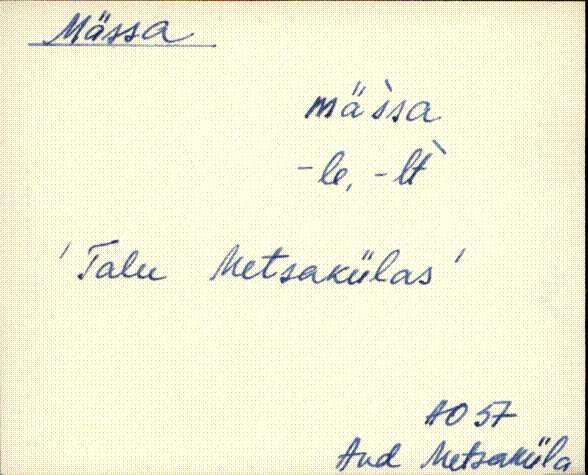 Mässa
mäs̀sa
-le, -lt̀
'Talu Metsakülas'
AO 57
Aud Metsaküla